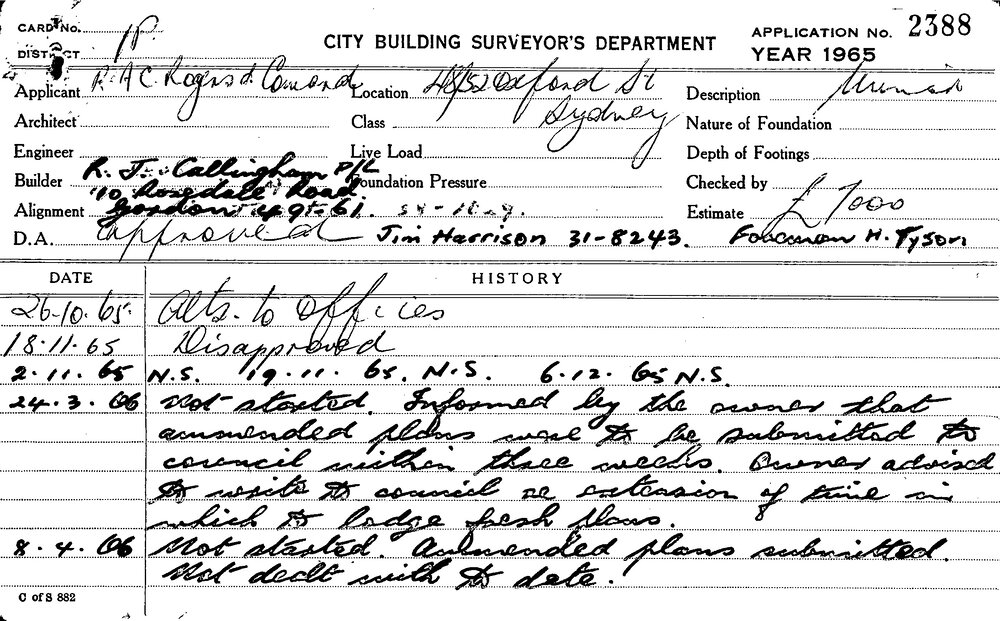 CARD No. 1P
CITY BUILDING SURVEYOR'S DEPARTMENT
APPLICATION No. 2388
DISTRICT
YEAR 1965
Applicant R. A C. Rogers & Location 48/52 Oxford St Description
Architect Class Sydney Nature of Foundation
Engineer Live Load Depth of Footings
Builder R. J. Callingham P/L Foundation Pressure Checked by
10 Rosedale Road
Alignment Gordon 49-61. Estimate £ 7000
D.A. approved Jim Harrison 31-8243. Foreman H. Tyson
DATE HISTORY
26.10.65. Alts. to Offices
18.11.65 Disapproved
2.11.65 N.S. 19.11.65. N.S. 6.12.65 N.S.
24.3.66 Not started. Informed by the owner that
ammended plans were to be submitted to
council within three weeks. Owner advised
to write to council re extension of time in
which to lodge fresh plans.
8.4.66 Not started. Ammended plans submitted.
Not dealt with to date.
C of S 882